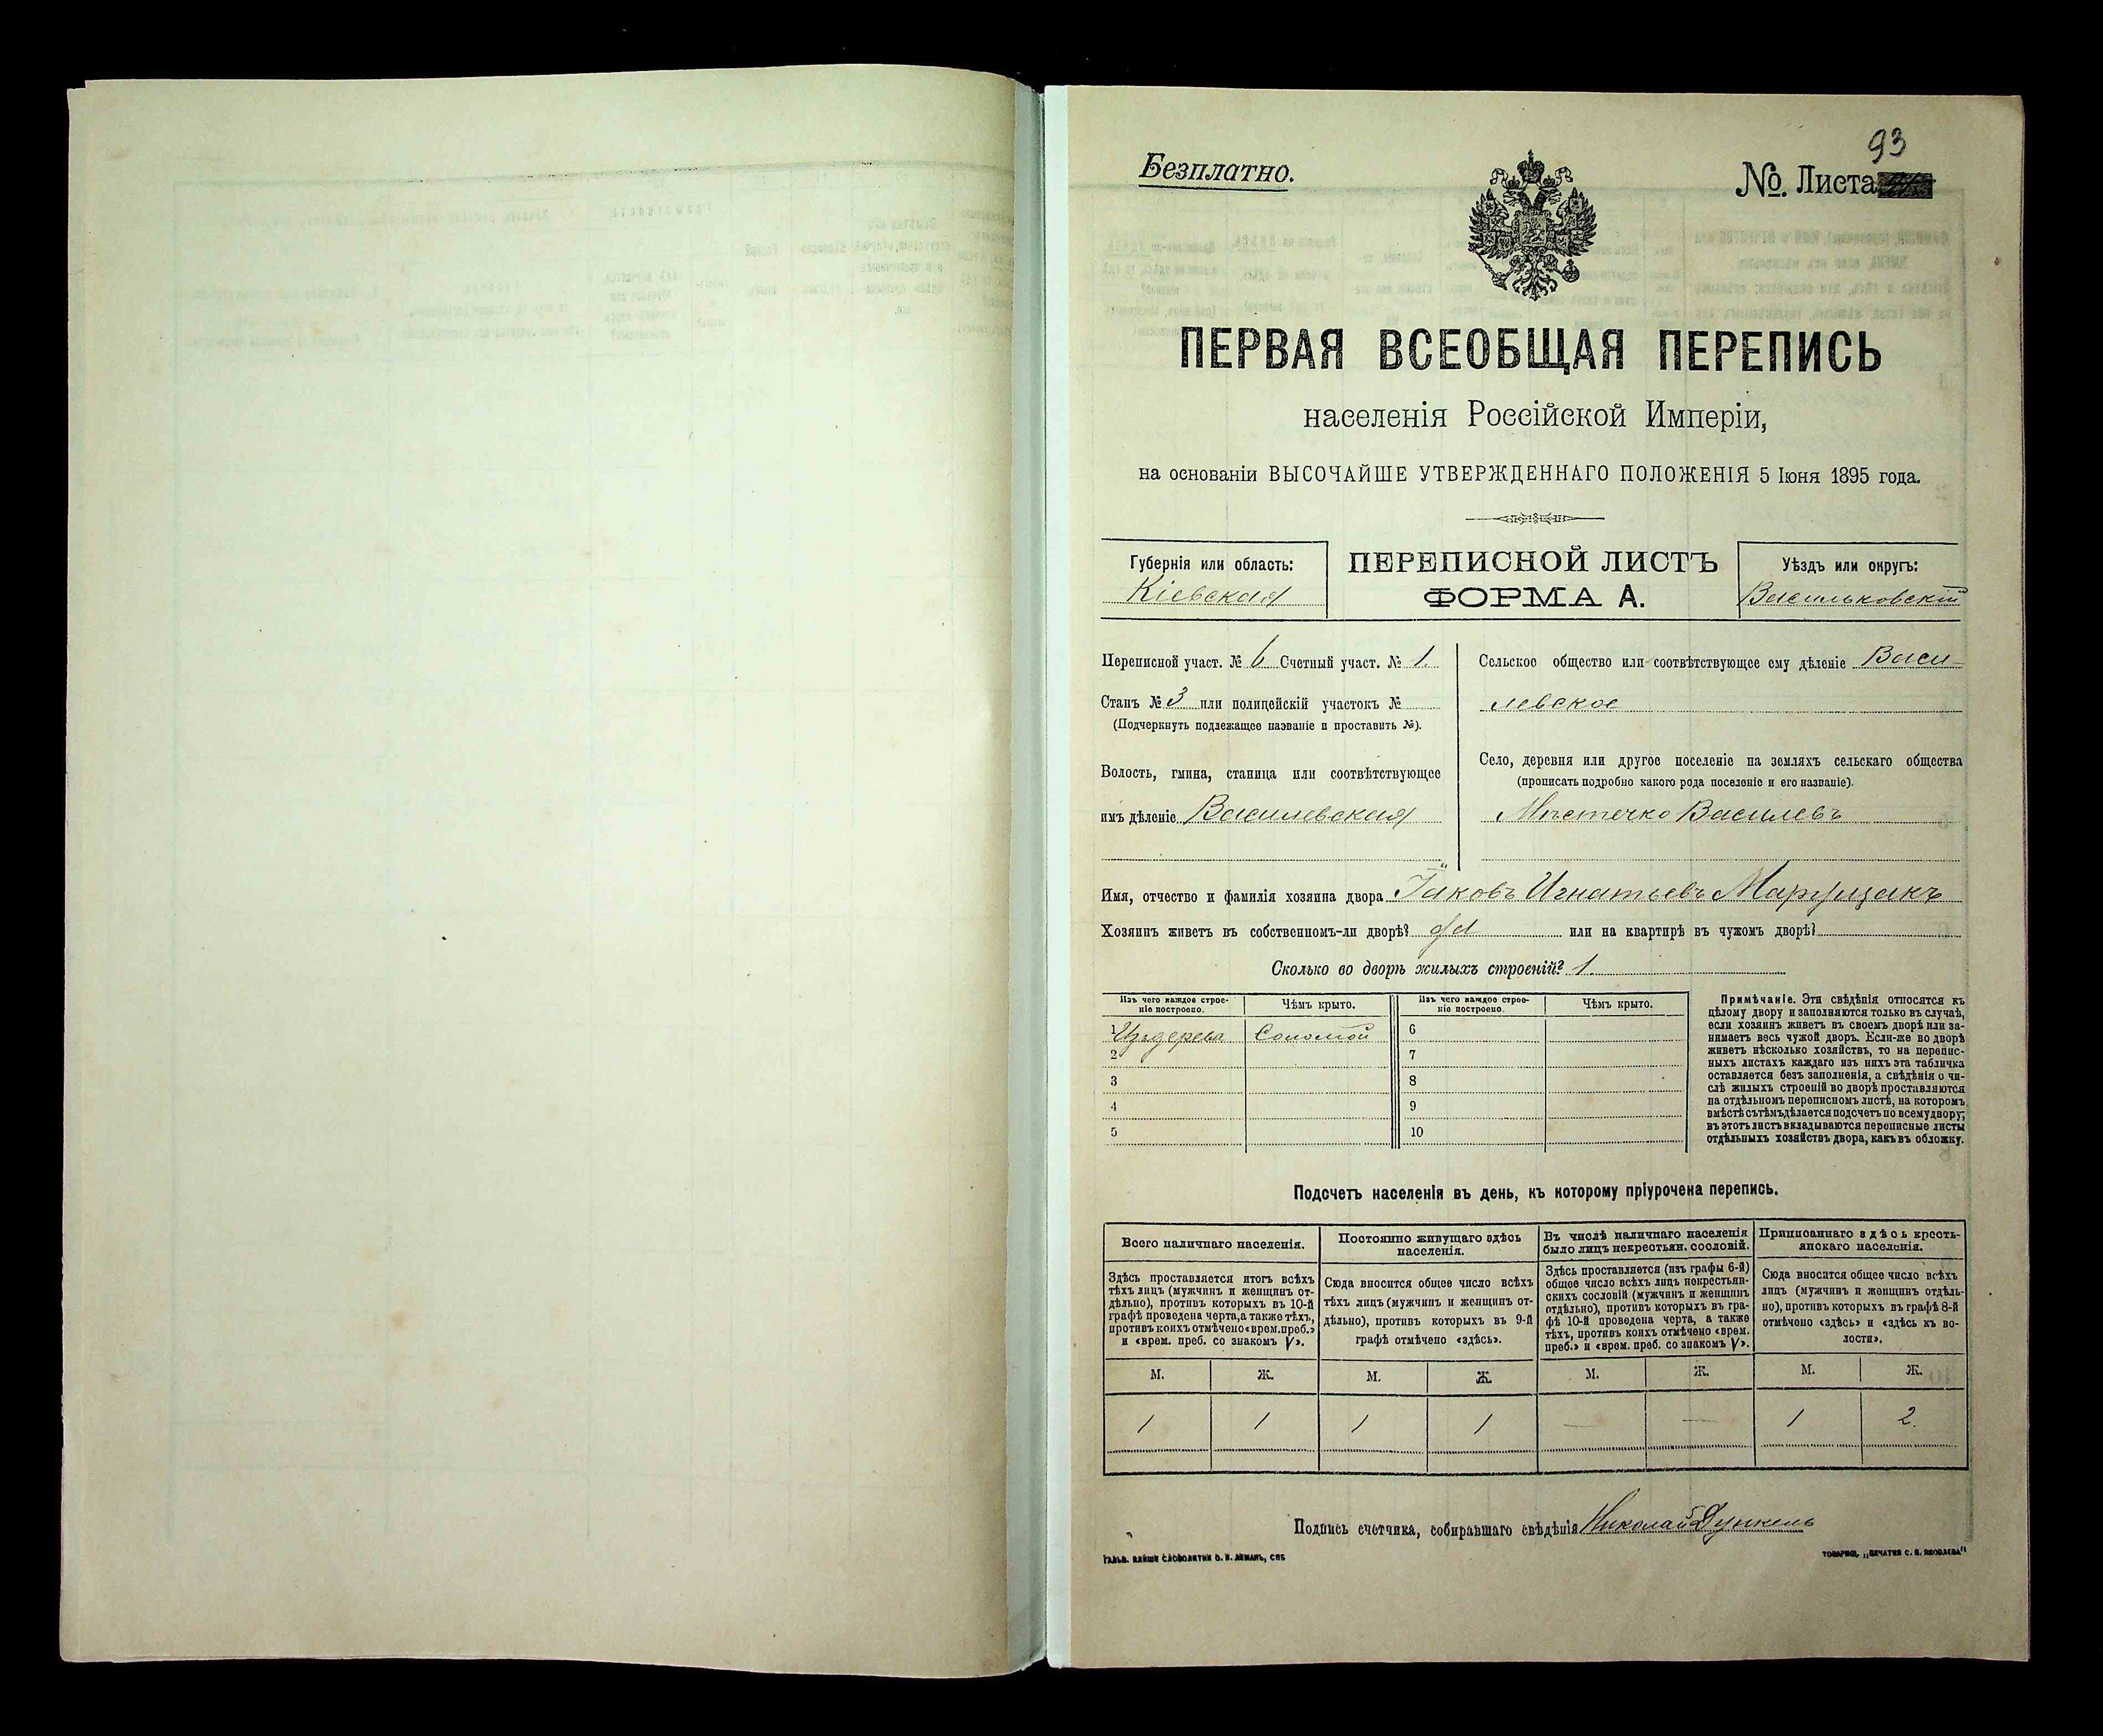 93
Безплатно.
№. Листа
ПЕРВАЯ ВСЕОБЩАЯ ПЕРЕПИСЬ
населенія Россійской Имперіи,
на основаніи ВЫСОЧАЙШЕ УТВЕРЖДЕННАГО ПОЛОЖЕНІЯ 5 Іюня 1895 года.
Губернія или область:
Кіевская
ПЕРЕПИСНОЙ ЛИСТЪ
ФОРМА А.
Уѣздъ или округъ:
Васильковскій
Переписной участ. № 6 Счетный участ. № 1.
Станъ № 3 или полицейскій участокъ №
(Подчеркнуть подлежащее названіе и проставить №).
Волость, гмина, станица или соотвѣтствующее
имъ дѣленіе Василевская
Сельское общество или соотвѣтствующее ему дѣленіе Васи-
левское
Село, деревня или другое поселеніе на земляхъ сельскаго общества
(прописать подробно какого рода поселеніе и его названіе).
Мѣстечко Василевъ
Имя, отчество и фамилія хозяина двора Іаковъ Игнатьевъ
Хозяинъ живетъ въ собственномъ-ли дворѣ? да или на квартирѣ въ чужомъ дворѣ?
Сколько во дворѣ жилыхъ строеній? 1.
Изъ чего каждое строе-
ніе построено.
Чѣмъ крыто.
Изъ чего каждое строе-
ніе построено.
Чѣмъ крыто.
1 Изъ дерева Соломой 6
2 7
3 8
4 9
5 10
Примѣчаніе. Эти свѣдѣнія относятся къ
цѣлому двору и заполняются только въ случаѣ,
если хозяинъ живетъ въ своемъ дворѣ или за-
нимаетъ весь чужой дворъ. Если-же во дворѣ
живетъ нѣсколько хозяйствъ, то на перепис-
ныхъ листахъ каждаго изъ нихъ эта табличка
оставляется безъ заполненія, а свѣдѣнія о чи-
слѣ жилыхъ строеній во дворѣ проставляются
на отдѣльномъ переписномъ листѣ, на которомъ
вмѣстѣ съ тѣмъ дѣлается подсчетъ по всему двору;
въ этотъ листъ вкладываются переписные листы
отдѣльныхъ хозяйствъ двора, какъ въ обложку.
Подсчетъ населенія въ день, къ которому пріурочена перепись.
Всего наличнаго населенія.
Постоянно живущаго здѣсь
населенія.
Въ числѣ наличнаго населенія
было лицъ некрестьян. сословій.
Приписаннаго здѣсь кресть-
янскаго населенія.
Здѣсь проставляется итогъ всѣхъ
тѣхъ лицъ (мужчинъ и женщинъ от-
дѣльно), противъ которыхъ въ 10-й
графѣ проведена черта, а также тѣхъ,
противъ коихъ отмѣчено «врем. преб.»
и «врем. преб. со знакомъ V».
Сюда вносится общее число всѣхъ
тѣхъ лицъ (мужчинъ и женщинъ от-
дѣльно), противъ которыхъ въ 9-й
графѣ отмѣчено «здѣсь».
Здѣсь проставляется (изъ графы 6-й)
общее число всѣхъ лицъ некрестьян-
скихъ сословій (мужчинъ и женщинъ
отдѣльно), противъ которыхъ въ гра-
фѣ 10-й проведена черта, а также
тѣхъ, противъ коихъ отмѣчено «врем.
преб.» и «врем. преб. со знакомъ V».
Сюда вносится общее число всѣхъ
лицъ (мужчинъ и женщинъ отдѣль-
но), противъ которыхъ въ графѣ 8-й
отмѣчено «здѣсь» и «здѣсь къ во-
лости».
М. Ж. М. Ж. М. Ж. М. Ж.
1 1 1 1 — — 1 2.
Подпись счетчика, собиравшаго свѣдѣнія Николай
ТОВАРИЩ. „ПЕЧАТНЯ С. П. ЯКОВЛЕВА"